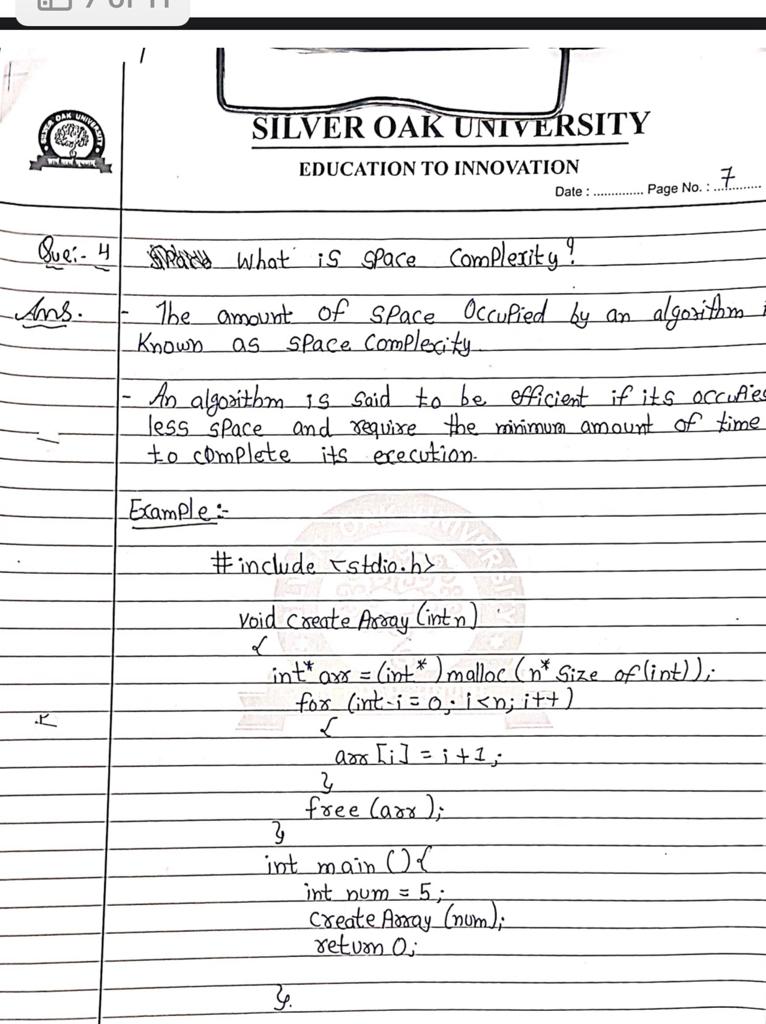 7 of 11
SILVER OAK UNIVERSITY
EDUCATION TO INNOVATION
Date : .............. Page No. : ..7..........
Que:- 4 What is space complexity?
Ans. - The amount of space occupied by an algorithm i
Known as space complexity.
- An algorithm is said to be efficient if its occupies
less space and require the minimum amount of time
to complete its execution.
Example :-
#include <stdio.h>
void create Array (int n)
{
int* arr = (int* ) malloc (n* size of (int));
for (int i = 0; i<n; i++)
{
arr [i] = i +1;
}
free (arr);
}
int main () {
int num = 5;
create Array (num);
return 0;
}.